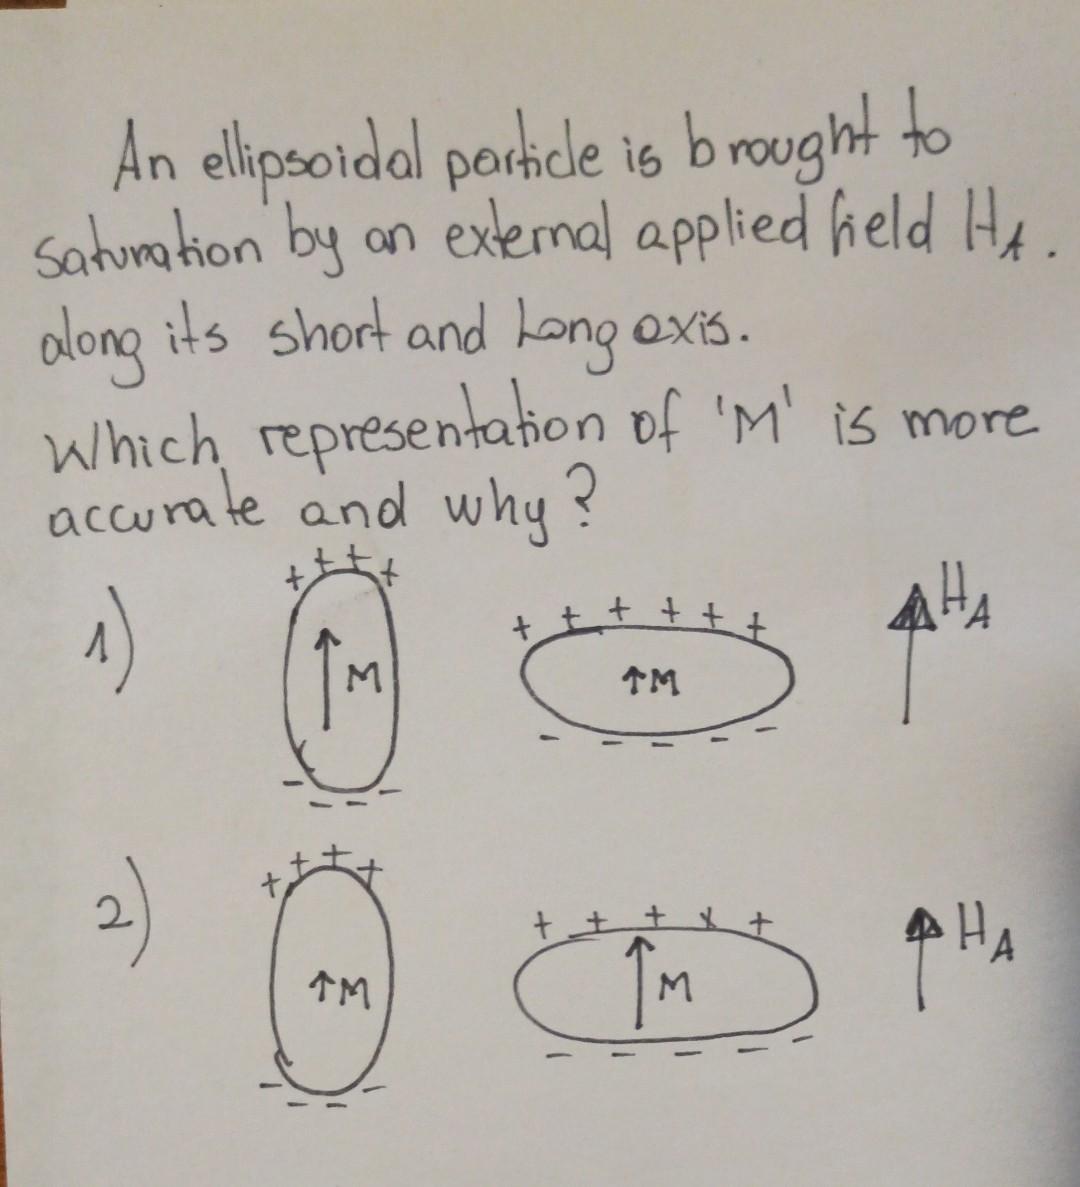 An ellipsoidal particle is brought to
saturation by an external applied field HA.
along its short and long axis.
Which representation of 'M' is more
accurate and why?
+ + + +
1)
M
- - - - -
+ + + + + +
M
- - - - -
HA
2)
+ + + +
M
- - - -
+ + + x +
M
- - - - -
HA